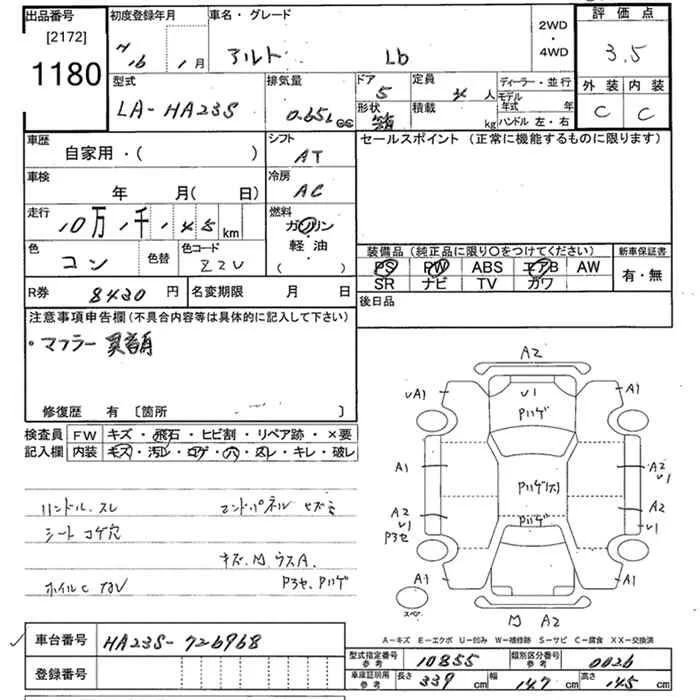 出品番号
[2172]
1180
初度登録年月
H16年1月
車名・グレード
アルト Lb
2WD
・
4WD
評価点
3.5
外装 内装
C C
型式
LA-HA23S
排気量
0.65L cc
ドア
5
定員
4人
形状
積載 kg
ディーラー・並行
モデル
年式 年
ハンドル 左・右
車歴
自家用・( )
シフト
AT
セールスポイント (正常に機能するものに限ります)
車検
年 月( 日)
冷房
AC
走行
10万1千145km
燃料
ガソリン
・
軽油
・
( )
色
コン
色替
色コード
ZZU
装備品 (純正品に限り○をつけてください)
PS PW ABS エアB AW
SR ナビ TV カワ
新車保証書
有・無
R券 8430円
名変期限 月 日
後日品
注意事項申告欄(不具合内容等は具体的に記入して下さい)
・マフラー異音有
修復歴 有 〔箇所 〕
検査員
記入欄
FW キズ・飛石・ヒビ割・リペア跡・×要
内装 キズ・汚レ・コゲ・穴・スレ・キレ・破レ
ハンドル.スレ
シートコゲ穴
キズ.凹.ウスA.
P3セ.Pハゲ
A2
U1
Pハゲ
UA1
A1
A1
A2
U1
Pハゲ
A2
U1
P3セ
A2
U1
A1
A1
スペア
凹 A2
A−キズ E−エクボ U−凹み W−補修跡 S−サビ C−腐食 XX−交換済
車台番号
HA23S-726968
登録番号
型式指定番号
参考
10855
類別区分番号
参考
0026
車庫証明用
参考
長さ 339 cm
幅 147 cm
高さ 145 cm